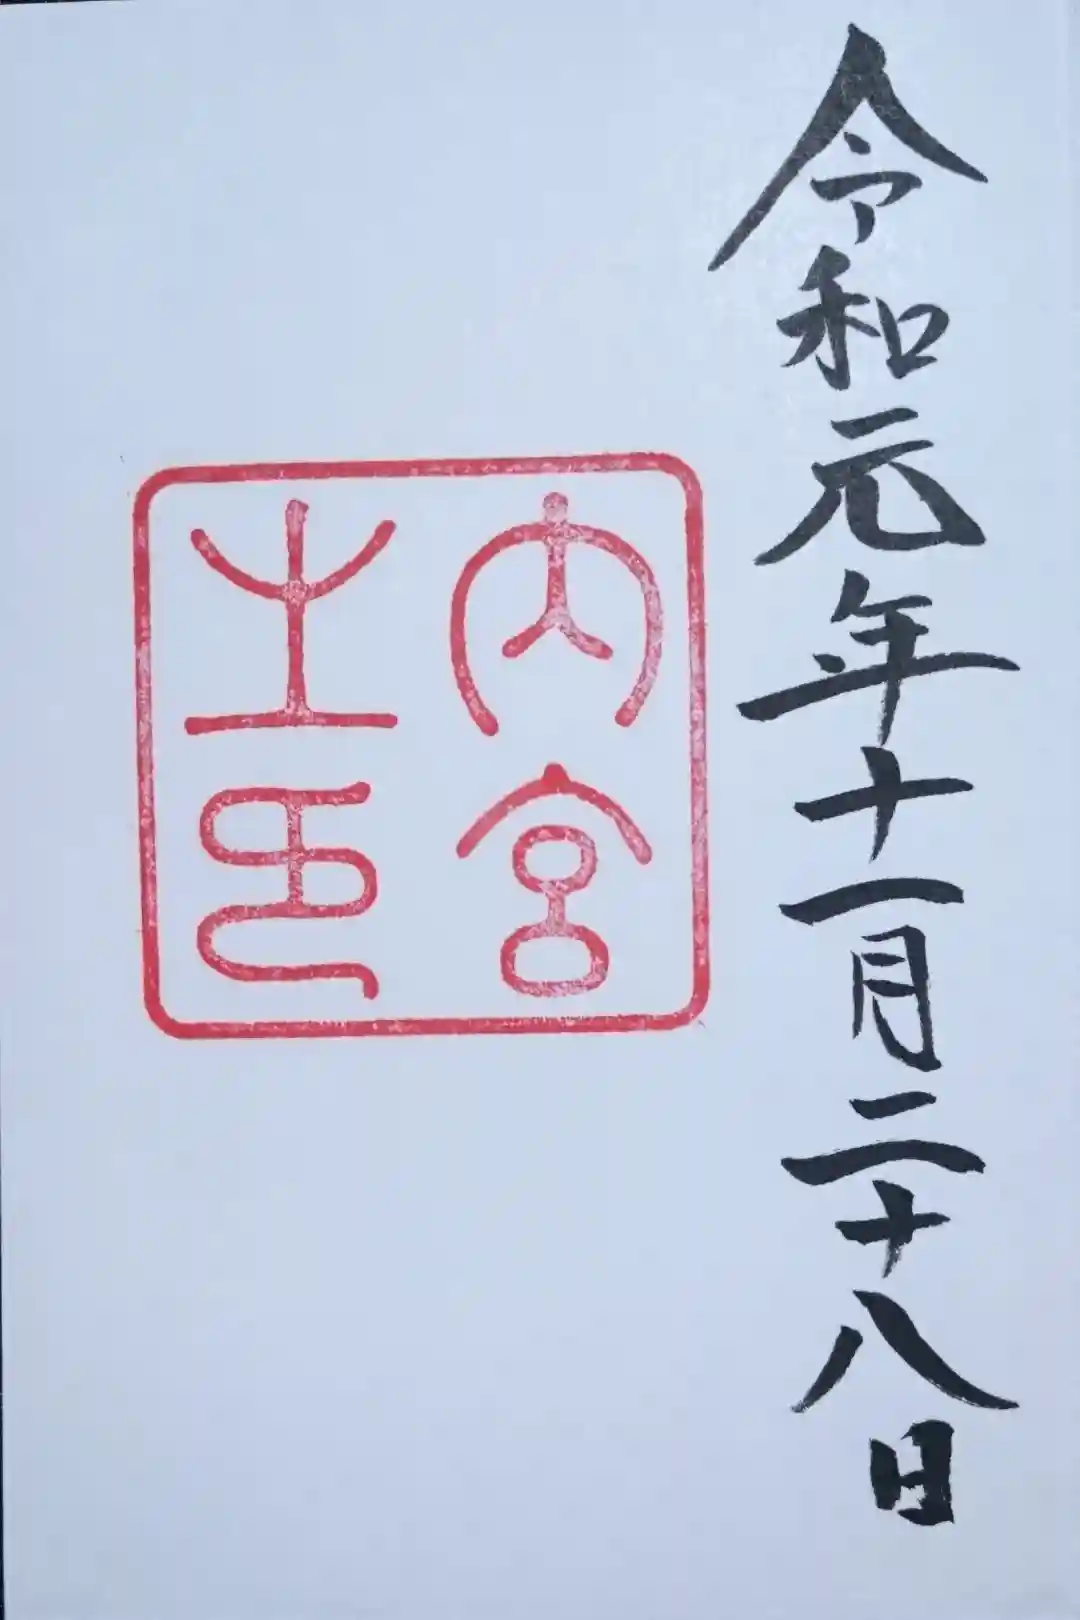 令和元年十一月二十八日
内宮
之印